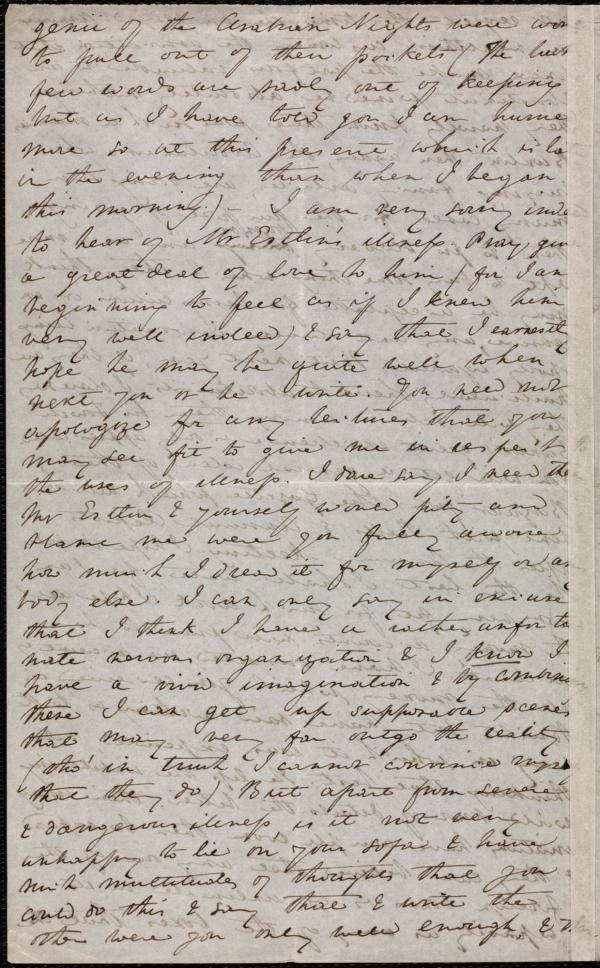 genii of the Arabian Nights were wont
to pull out of their pockets (The last
few words are sadly out of keeping
but as I have told you I am
more so at this present which is la
in the evening than when I began
this morning.) - I am very sorry inde
to hear of Mr Estlin's illness. Pray, give
a great deal of love to him (for I am
beginning to feel as if I knew him
very well indeed) & say that I earnestly
hope he may be quite well when
next you or he write. You need not
apologize for any lectures that you
may see fit to give me in respect
the uses of illness. I dare say I need the
Mr Estlin & yourself would pity and
blame me were you fully aware
how much I dread it for myself or an
body else. I can only say in excuse
that I think I have a rather unfortu
nate nervous organization & I know I
have a vivid imagination & by combini
these I can get up supposable scenes
that may very far outgo the reality
(tho' in truth I cannot convince myse
that they do) But apart from severe
& dangerous illness is it not very
unhappy to lie on your sofa & have
such multitudes of thoughts that you
could do this & say that & write the
other were you only well enough, &